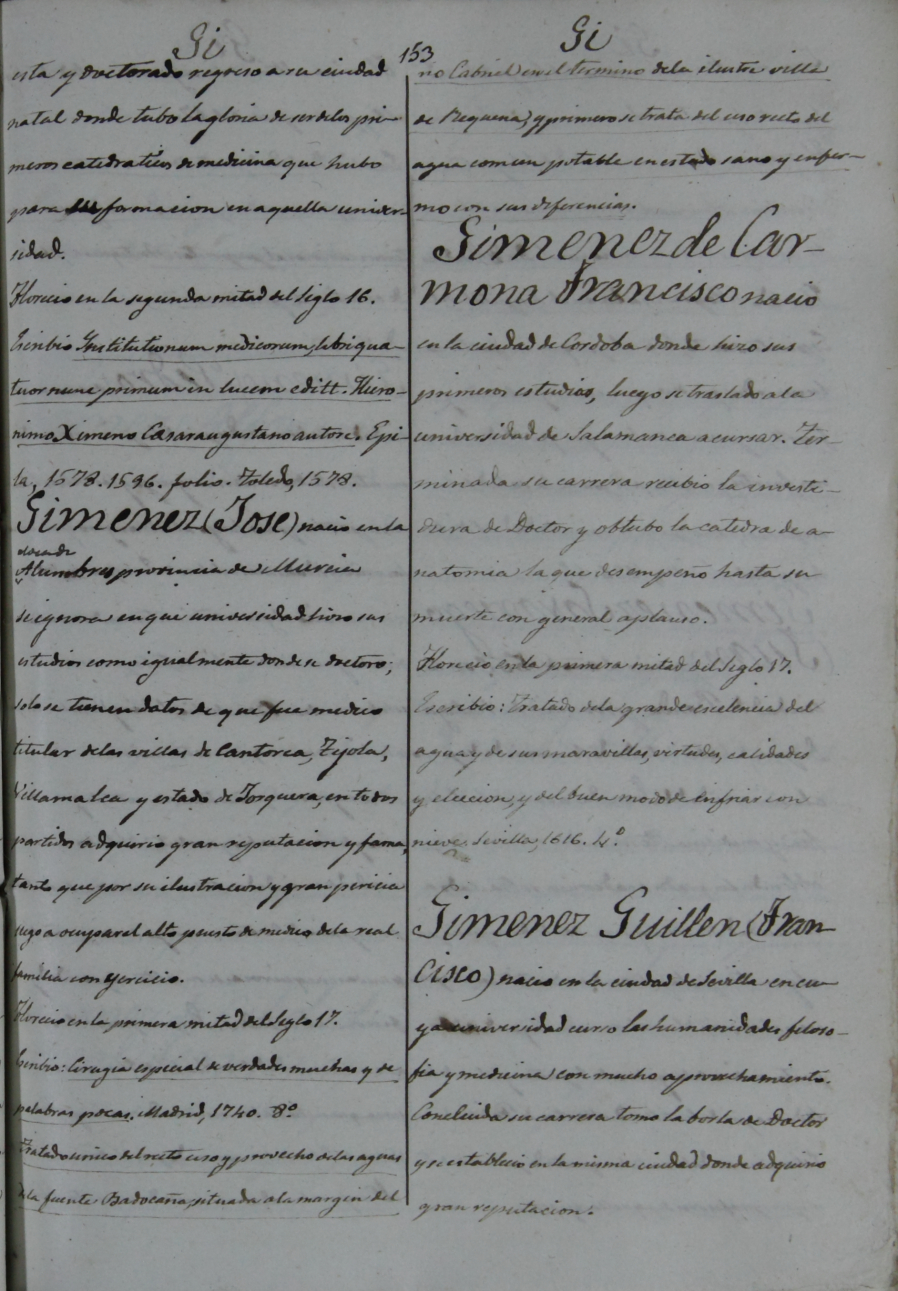 Gi
153
esta y doctorado regreso a su ciudad
natal donde tubo la gloria de ser de los pri-
meros catedraticos de medicina que hubo
para su formacion en aquella univer-
sidad.
Florecio en la segunda mitad del siglo 16.
Escribio Institutionum medicorum, libri qua-
tuor nunc primum in lucem editt. Hiero-
nimo Ximeno Casaraugustano autore. Epi-
la, 1578. 1596. folio. Toledo, 1578.
Gimenez (Jose) nacio en la
Alumbres provincia de Murcia
se ignora en que universidad hizo sus
estudios como igualmente donde se doctoro;
solo se tienen datos de que fue medico
titular de las villas de Cantoria, Tijola,
Villamalea y estado de Jorquera, en todos
partidos adquirio gran reputacion y fama,
tanto que por su ilustracion y gran pericia
llego a ocupar el alto puesto de medico de la real
familia con ejercicio.
Florecio en la primera mitad del Siglo 17.
Escribio: Cirugia especial de verdades muchas y de
palabras pocas. Madrid, 1740. 8º
Tratado unico del recto uso y provecho de las aguas
de la fuente Badocaña, situada a la margen del
Gi
rio Cabriel en el termino de la ilustre villa
de Requena; y primero se trata del uso recto del
agua comun potable en estado sano y enfer-
mo con sus diferencias.
Gimenez de Car-
mona Francisco nacio
en la ciudad de Cordoba donde hizo sus
primeros estudios, luego se traslado a la
universidad de Salamanca a cursar. Ter-
minada su carrera recibio la investi-
dura de Doctor y obtubo la catedra de a-
natomia la que desempeño hasta su
muerte con general aplauso.
Florecio en la primera mitad del Siglo 17.
Escribio: Tratado de la grande escelencia del
agua y de sus maravillas, virtudes, calidades
y eleccion, y del buen modo de enfriar con
nieve. Sevilla, 1616. 4º
Gimenez Guillen (Fran-
cisco) nacio en la ciudad de Sevilla en cu-
ya universidad curso las humanidades filoso-
fia y medicina con mucho aprovechamiento.
Concluida su carrera tomo la borla de Doctor
y se establecio en la misma ciudad donde adquirio
gran reputacion.